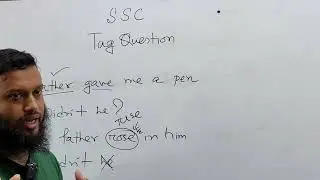 SSC
Tag Question
ather gave me a pen
idn't he?
rise
father rose in him
dn't